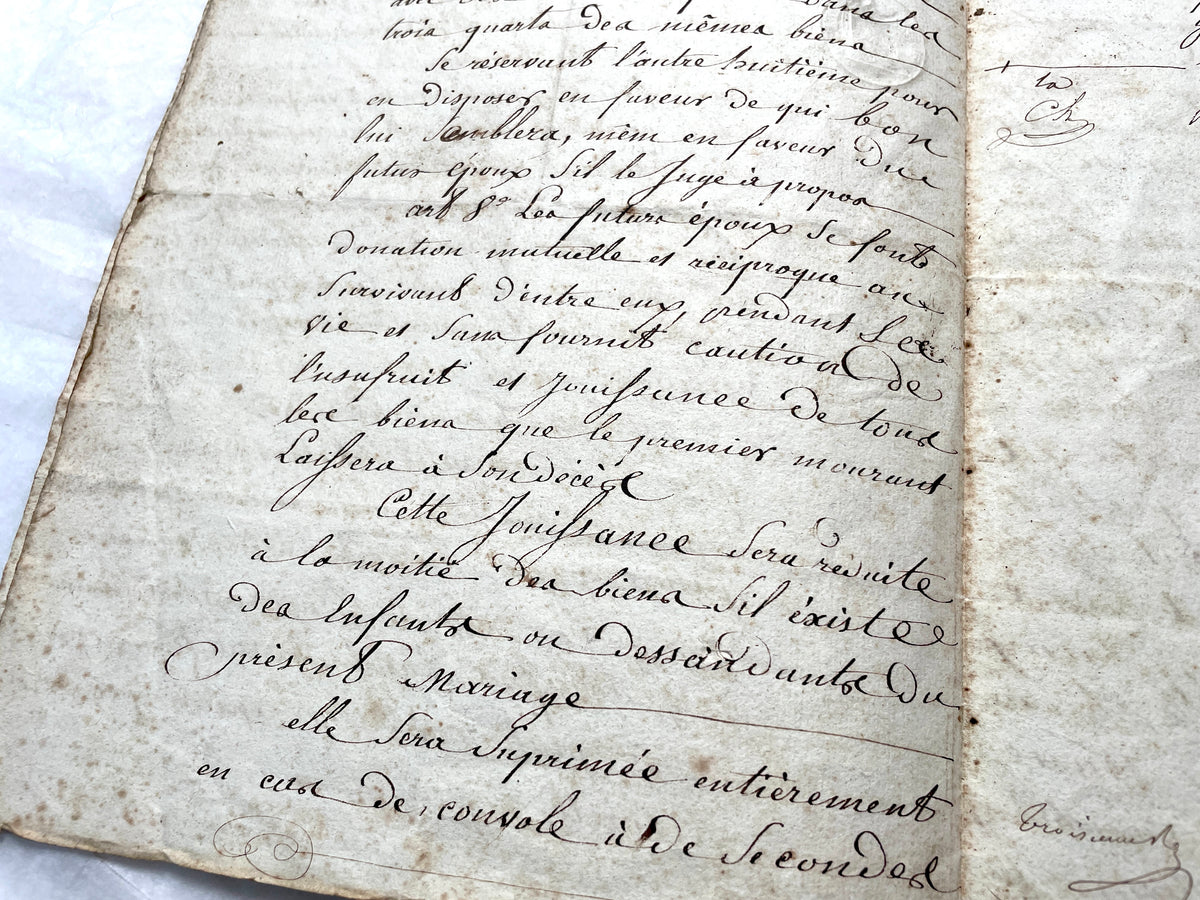 dans les
trois quarts des mêmes biens
Se réservant l'autre huitième pour
en disposer en faveur de qui bon
lui Semblera, mêm en faveur Du
futur époux S'il le Juge à propos
art 8º Les futurs époux Se font
Donation mutuelle et réciproque au
Survivant d'entre eux, pendant Sa
vie et Sans fournir caution De
l'usufruit et Jouissance De tous
les biens que le premier mourant
Laissera à Son décès
Cette Jouissance Sera réduite
à la moitié des biens S'il éxiste
Des Enfants ou Dessandants Du
présent Mariage
elle Sera Suprimée entièrement
en cas de convole à de Secondes
Ch